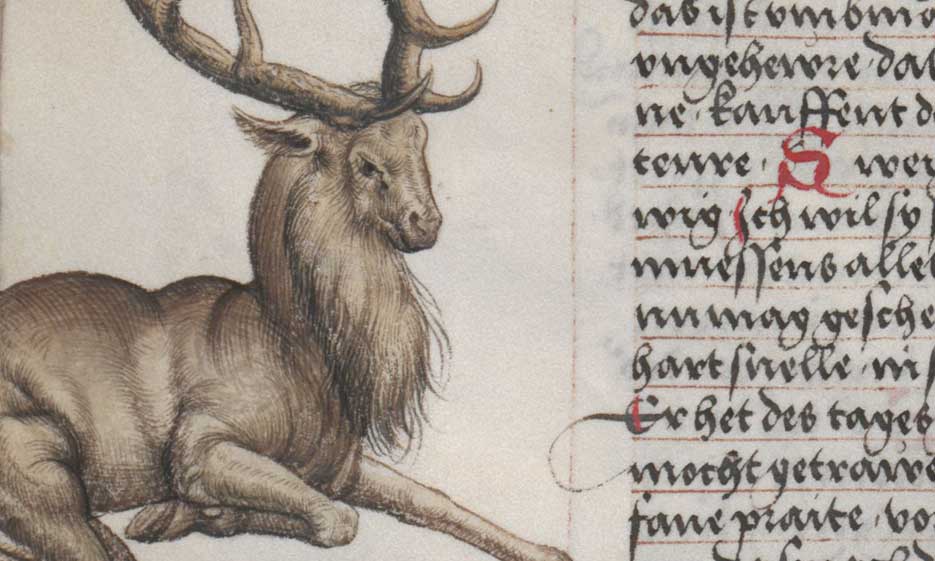 das ist vmb mo
vngehewre · daz
ne · kauffent d
tewre · S wer
wig Ich wil sy s
muessens alles
nu mag gesche
hart snelle · in s
Er het des tages
mocht getrawe
fane praite · vo